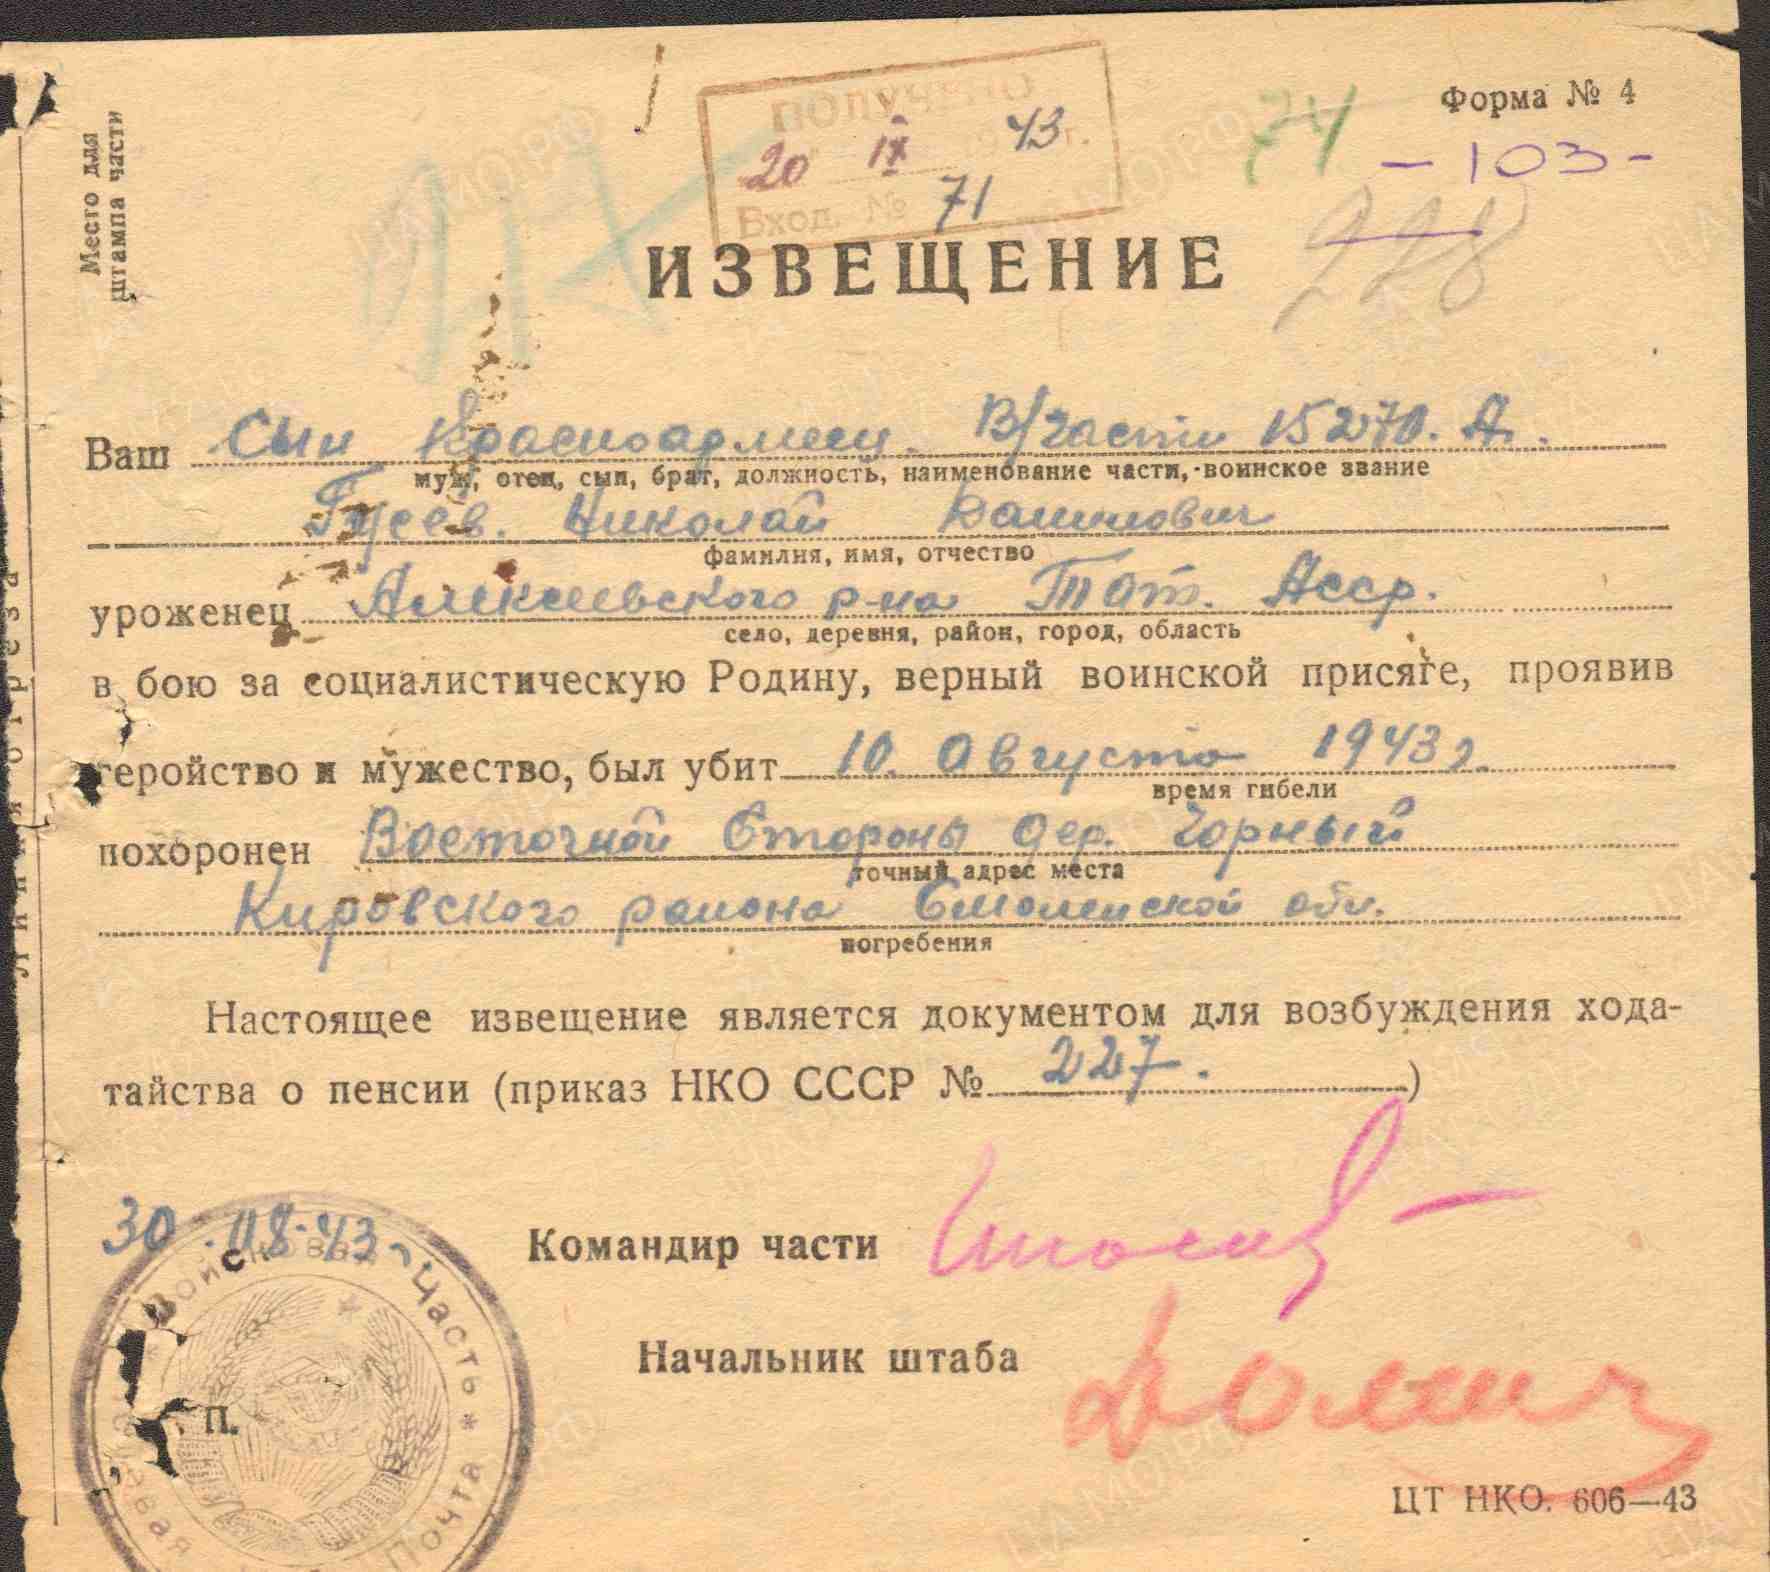 Место для
штампа части
ПОЛУЧЕНО
20 IX 43 г.
Вход. № 71
74
Форма № 4
- 103 -
228
ИЗВЕЩЕНИЕ
Ваш Сын Красноармеец. В/части 15270. А.
муж, отец, сын, брат, должность, наименование части, воинское звание
Гусев. Николай
фамилия, имя, отчество
уроженец Алексеевского р-на Тат. Асср.
село, деревня, район, город, область
в бою за социалистическую Родину, верный воинской присяге, проявив
геройство и мужество, был убит 10. Августа 1943 г.
время гибели
похоронен Восточной Стороны дер. Горный
точный адрес места
Кировского района Смоленской обл.
погребения
Настоящее извещение является документом для возбуждения хода-
тайства о пенсии (приказ НКО СССР № 227. )
30.08.43
Командир части
Начальник штаба
П.
Войсковая Часть * Полевая Почта
ЦТ НКО. 606—43
Линия отреза